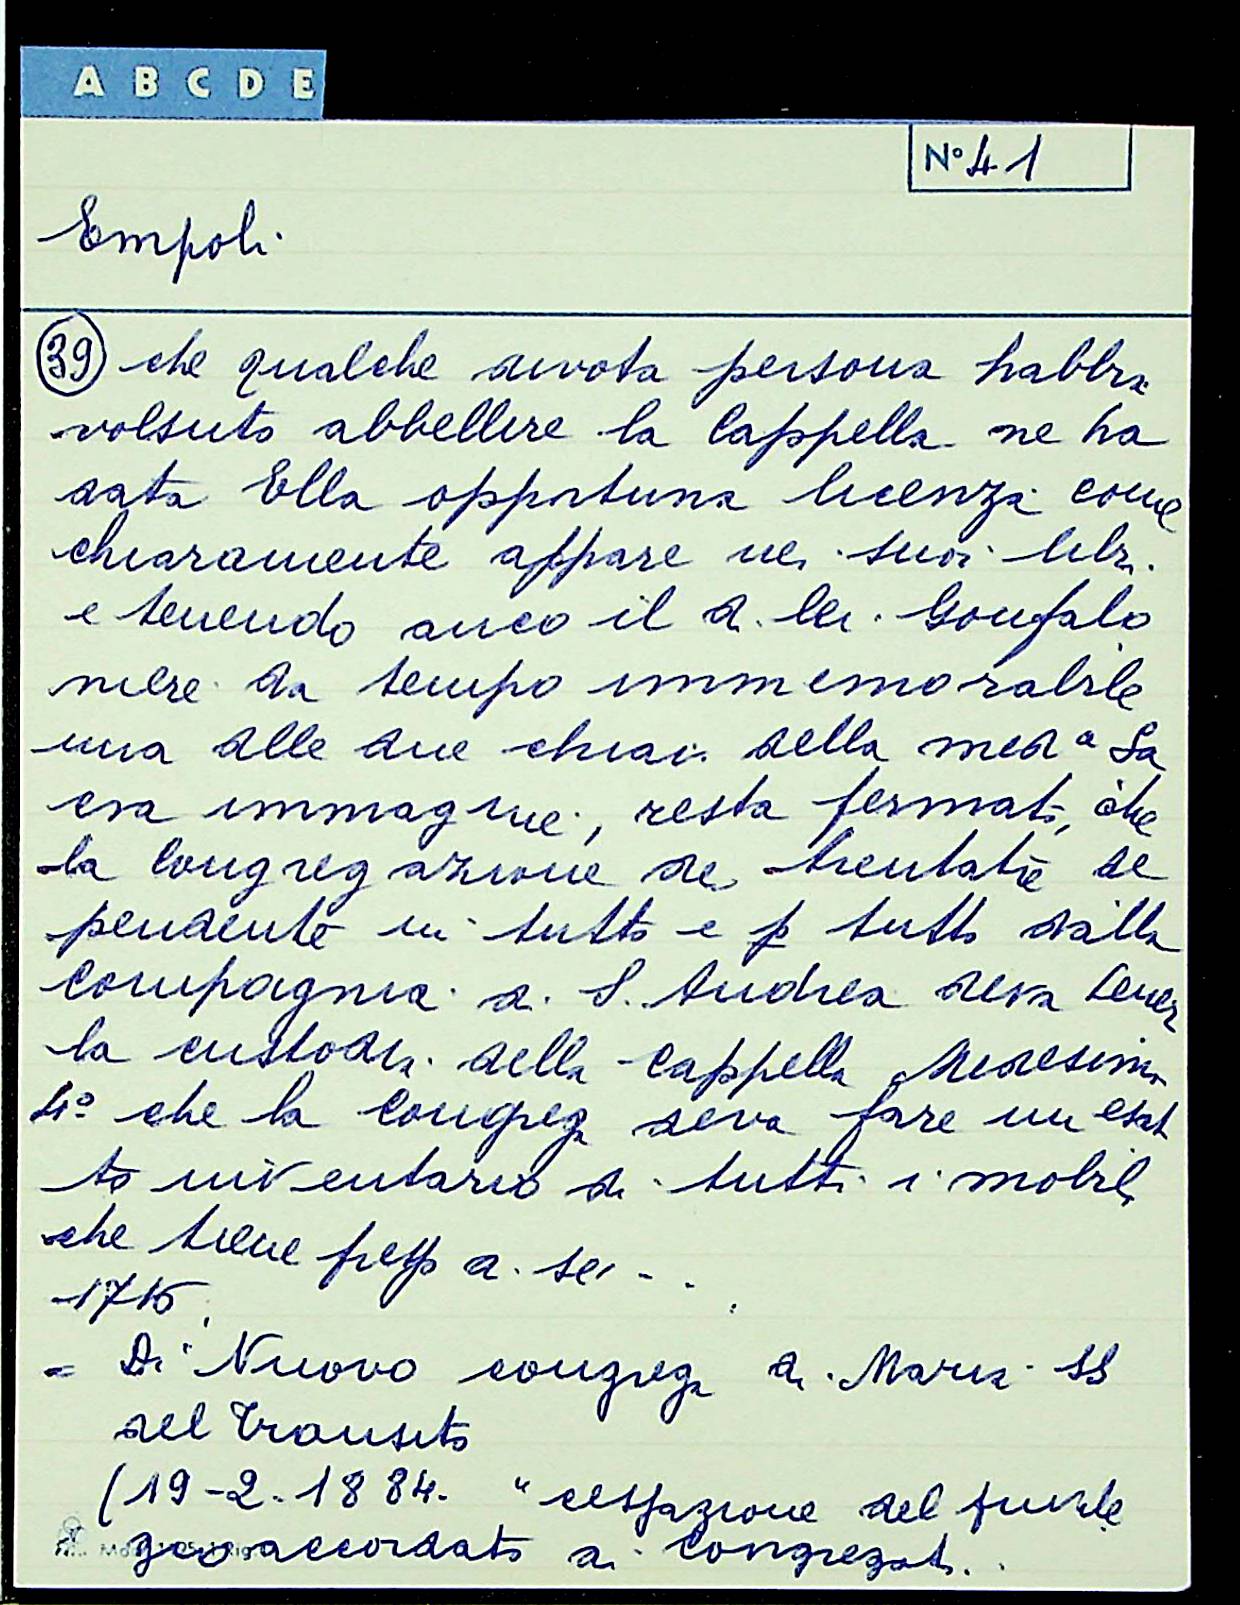 A B C D E
N° 41
Empoli.
39 che qualche divota persona habbia
volsuto abbellire la Cappella ne ha
data Ella opportuna licenza come
chiaramente appare nei suoi libri.
e tenendo anco il d. Gonfalo
niere da tempo immemorabile
una delle due chiavi della med.a Sa
cra immagine, resta fermato, che
la Congregazione de trentatrè de
pendente in tutto e p tutto dalla
Compagnia di S. Andrea deva tener
la custodia della Cappella Medesima
4° che la Congreg. deva fare un esat
to inventario di tutti i mobili
che tiene presso di se - . .
1715.
= Di Nuovo congreg. di Maria SS
del Transito
(19-2.1884. "cessazione del
accordato ai Congregati..